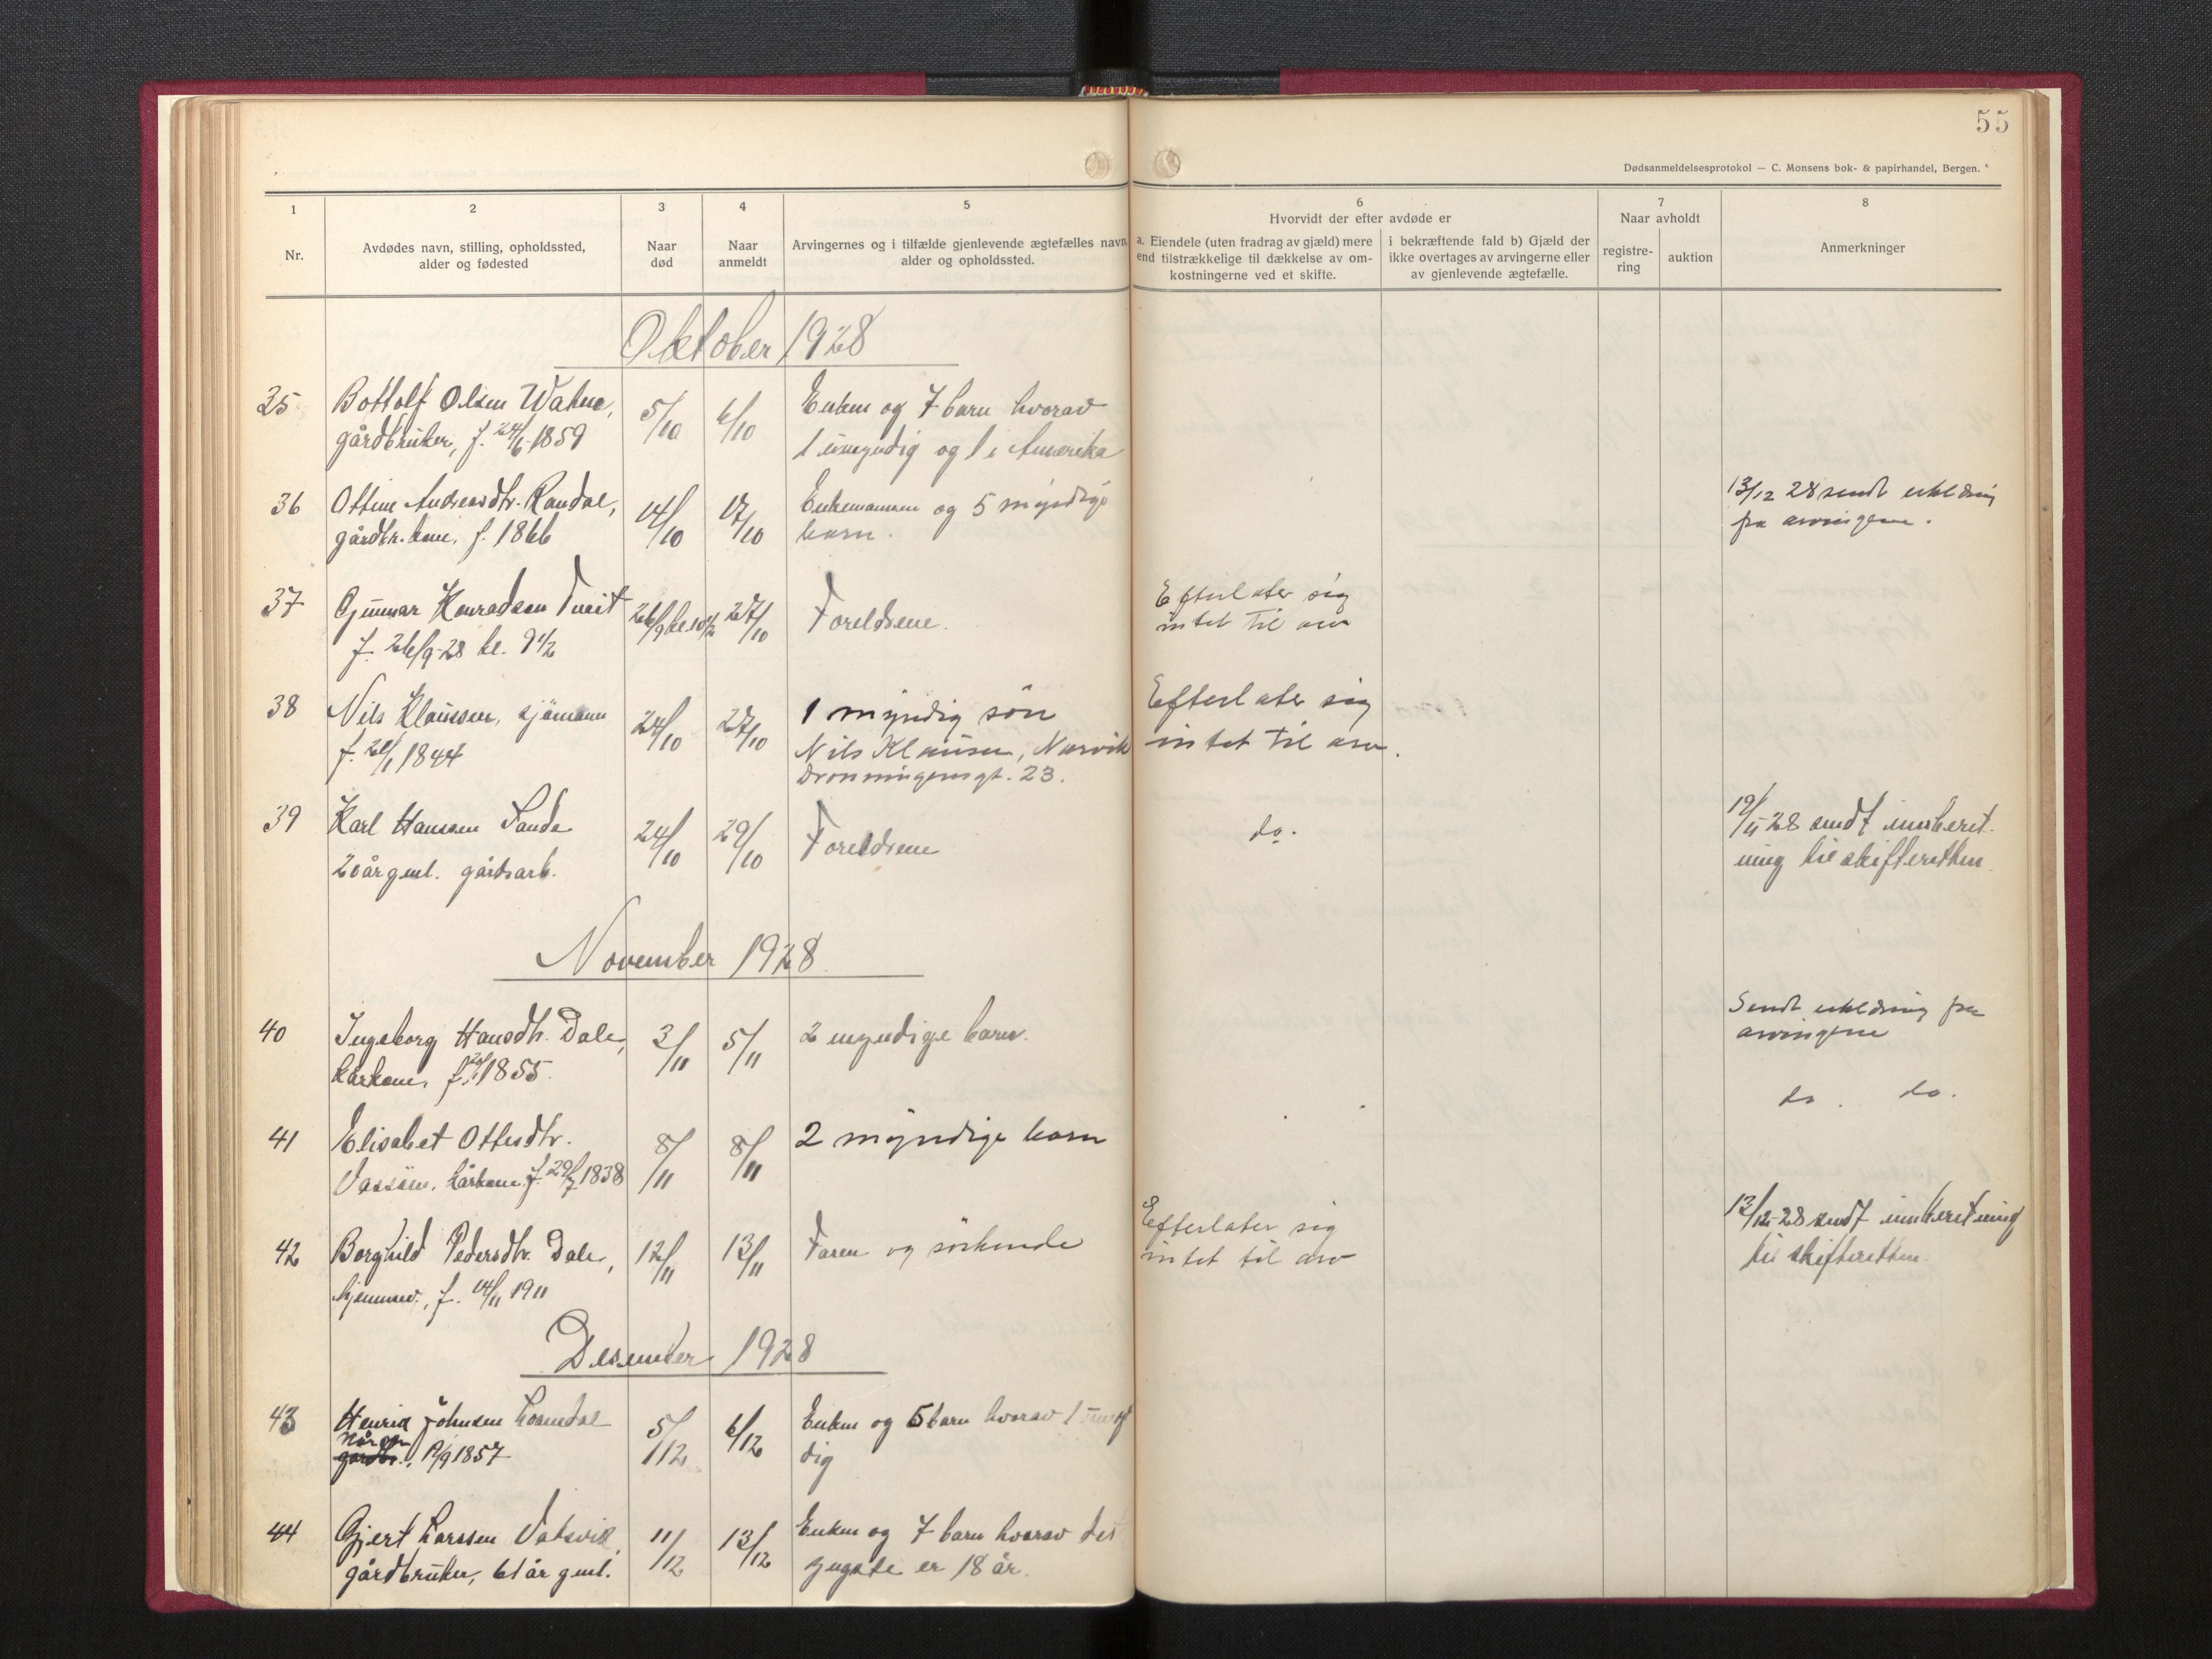 55
Dødsanmeldelsesprotokol — C. Monsens bok- & papirhandel, Bergen.
1
2
3
4
5
6
7
8
Nr.
Avdødes navn, stilling, opholdssted,
alder og fødested
Naar
død
Naar
anmeldt
Arvingernes og i tilfælde gjenlevende ægtefælles navn,
alder og opholdssted.
Hvorvidt der efter avdøde er
a. Eiendele (uten fradrag av gjæld) mere
end tilstrækkelige til dækkelse av om-
kostningerne ved et skifte.
i bekræftende fald b) Gjæld der
ikke overtages av arvingerne eller
av gjenlevende ægtefælle.
Naar avholdt
registre-
ring
auktion
Anmerkninger
Oktober 1928
35 Bottolf Olsen 5/10 6/10 Enken og 7 barn hvorav
gårdbruker, f. 24/6 1859 1 umyndig og 1 i Amerika
36 Ottine Andreasdtr. Randal, 14/10 17/10 Enkemannen og 5 myndige 13/12 28 sendt erklæring
gårdbr.kone, f. 1866 barn. fra arvingene.
37 Gunnar Konradsen Tveit 26/9 kl. 10 1/2 27/10 Foreldrene. Efterlater sig
f. 26/9-28 kl. 9 1/2 intet til arv
38 Nils Klaussen, sjömann 24/10 27/10 1 myndig sön Efterlater sig
1844 Nils Klausen, Narvik intet til arv.
Dronningensgt. 23.
39 Karl Hansen Sande 24/10 29/10 Foreldrene do. 19/11-28 sendt innberet-
20 år gml. gårdsarb. ning til skifteretten.
November 1928
40 Ingeborg Hansdtr. Dale, 3/11 5/11 2 myndige barn. Sendt erklæring fra
kårkone, 1855. arvingene
41 Elisabet Ottesdtr. 8/11 8/11 2 myndige barn do. do.
kårkone f. 29/7 1838
42 Borghild Pedersdtr. Dale, 12/11 13/11 Faren og söskende Efterlater sig 13/12-28 sendt innberetning
f. 14/11 1911 intet til arv til skifteretten.
Desember 1928
43 Henrik Johnsen 5/12 6/12 Enken og 5 barn hvorav 1 umyn
gårdbr. 1857 dig
44 Gjert Larssen Vatsvik, 11/12 13/12 Enken og 7 barn hvorav det
gårdbruker, 61 år gml. yngste er 18 år.